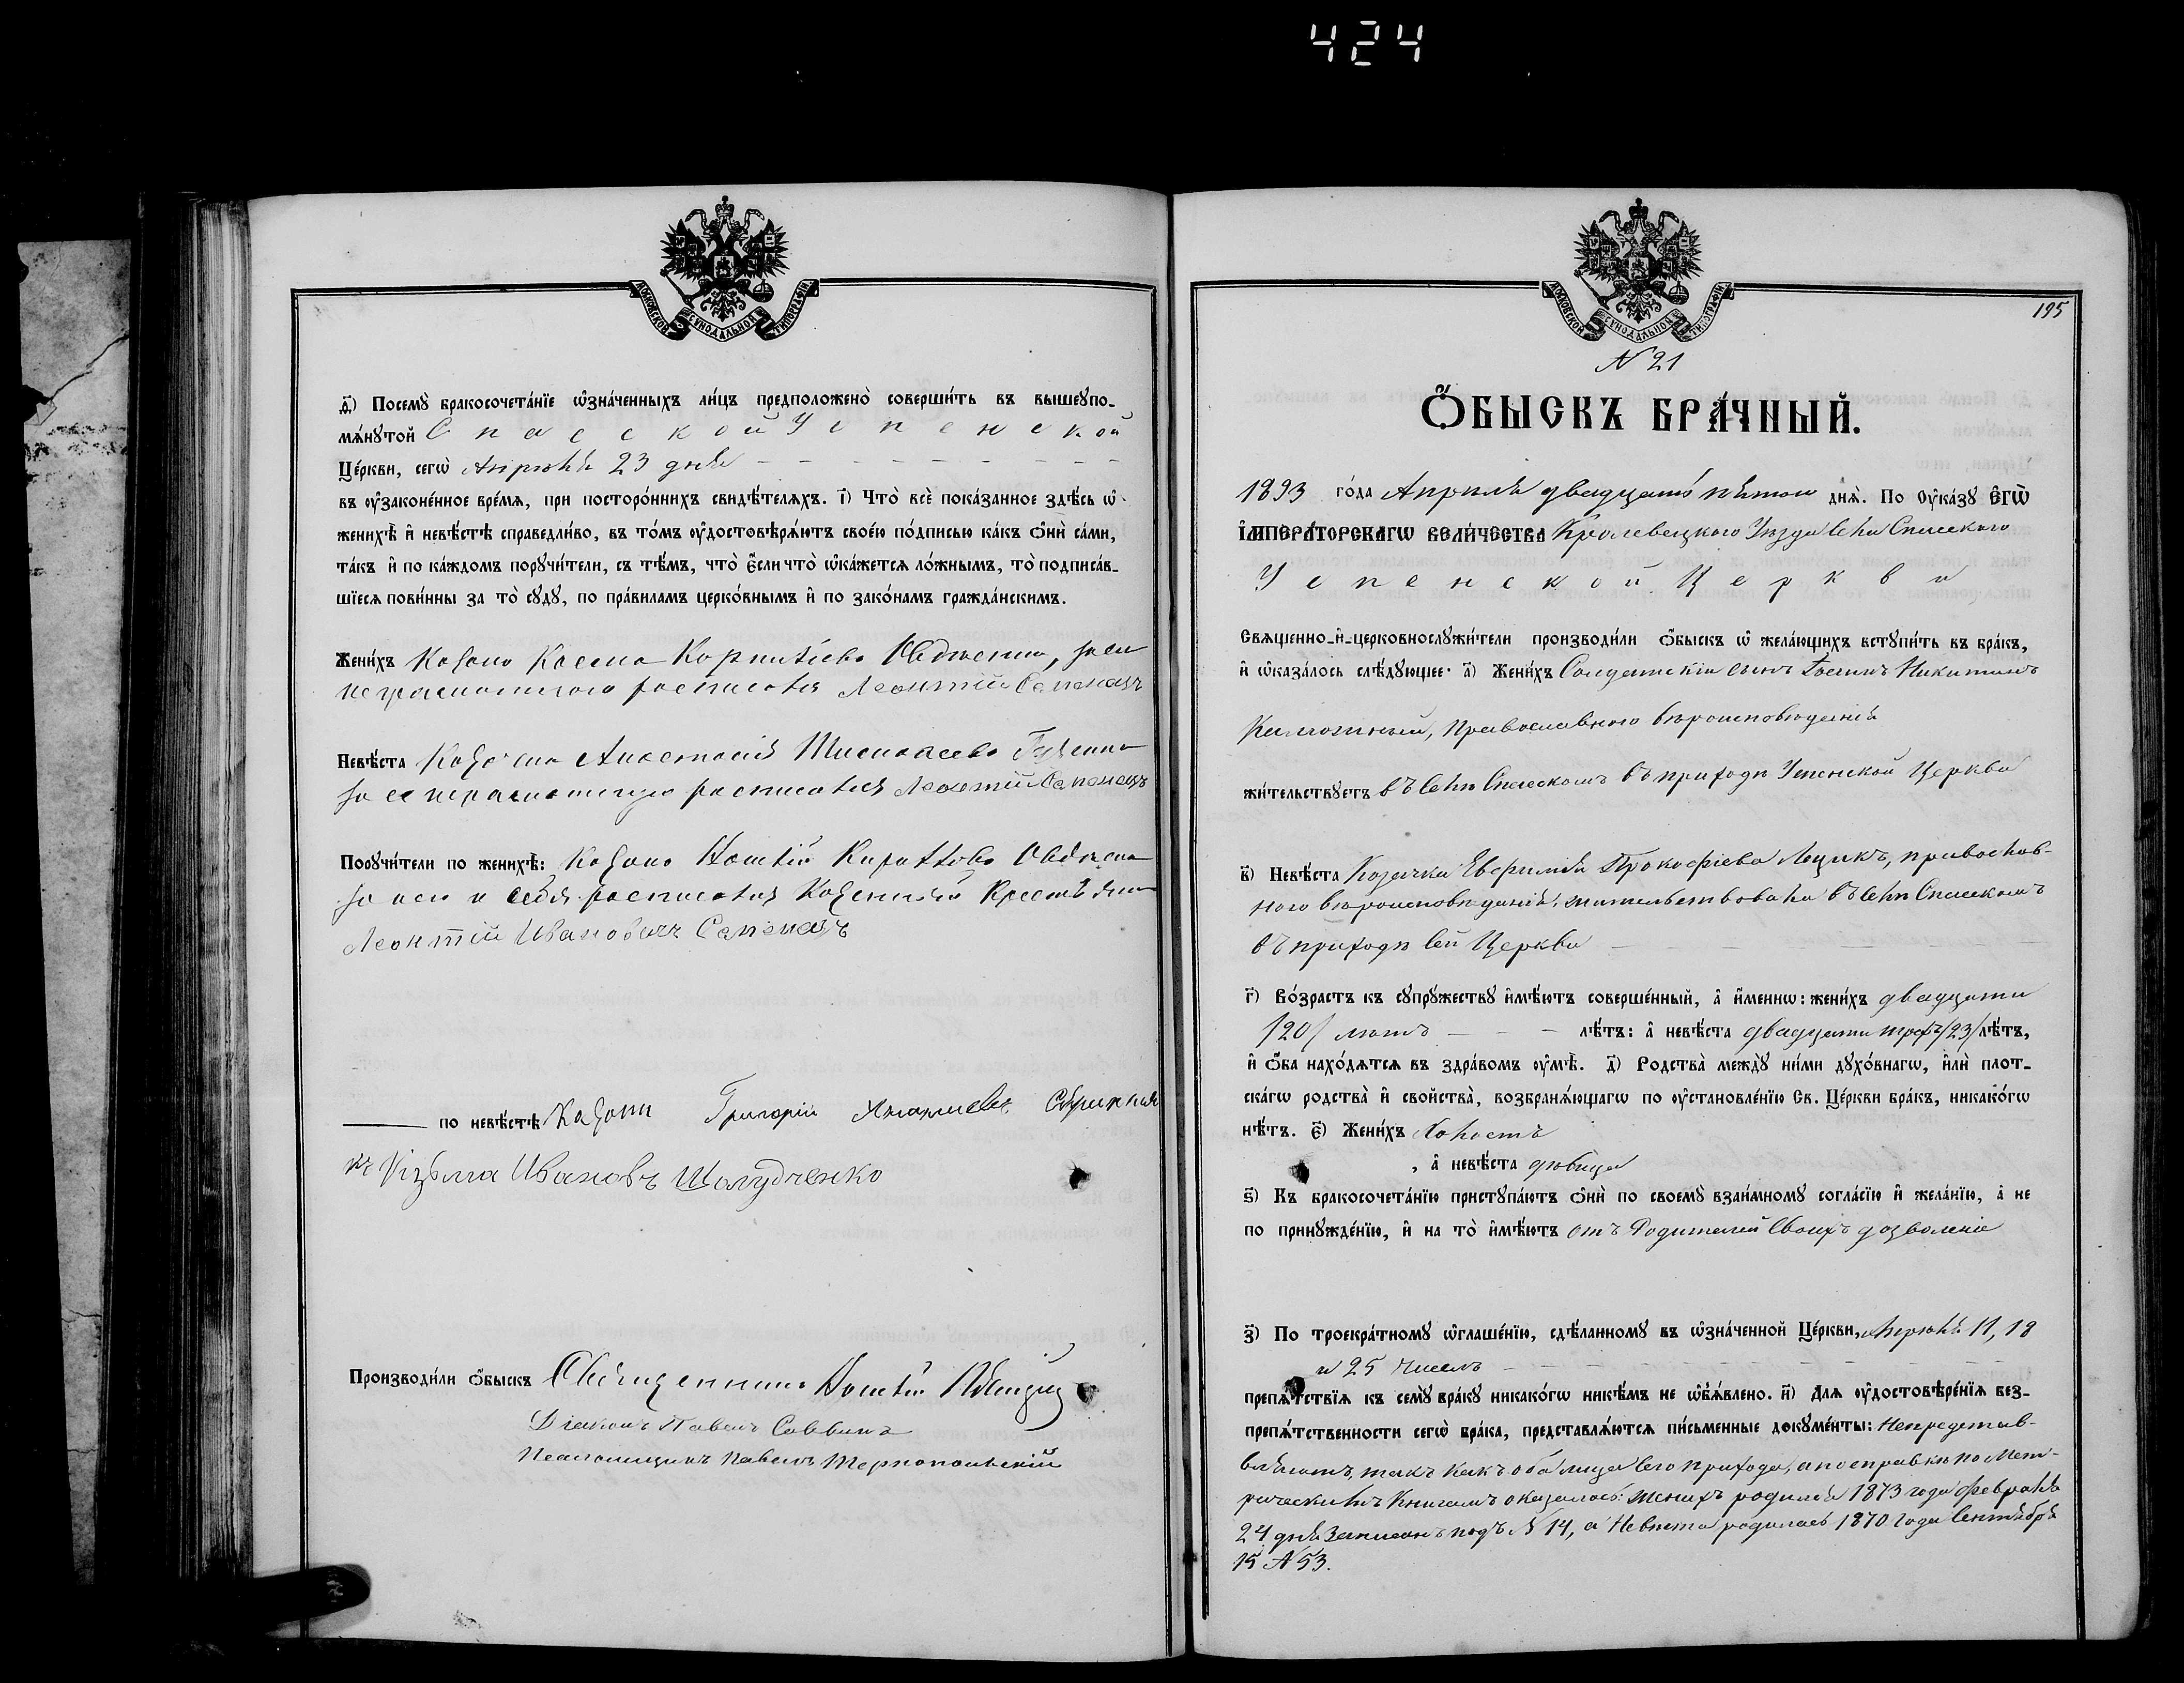 424
МОСКОВСКОЙ СѴНОДАЛЬНОЙ ТИПОГРАФІИ
ѳ҃) Посемꙋ̀ бракосочета́нїе ѡ҆зна́ченныхъ ли́цъ предположено̀ соверши́ть въ вышеꙋпо-
мѧ́нꙋтой Спасской Успенской
Це́ркви, сегѡ̀ Апрѣля 23 дня
въ ᲂу҆законе́нное вре́мѧ, при посторо́ннихъ свидѣ́телѧхъ. і҃) Что̀ всѐ пока́занное здѣ́сь ѡ҆
женихѣ̀ и҆ невѣ́стѣ справедли́во, въ то́мъ ᲂу҆достовѣрѧ́ютъ свое́ю по́дписью ка́къ ѻ҆нѝ са́ми,
та́къ и҆ по ка́ждомъ порꙋчи́тели, съ тѣ́мъ, что̀ є҆́сли что̀ ѡ҆ка́жетсѧ ло́жнымъ, то̀ подписа́в-
шїесѧ пови́нны за то̀ сꙋдꙋ̀, по пра́виламъ церко́внымъ и҆ по зако́намъ гражда́нскимъ.
Жени́хъ Козакъ Косма Овдѣенко, за
неграмотного росписался Леонтій Сапонецъ
Невѣ́ста Козачка Анастасія
за ее неграмотную росписался Леонтій Сапонецъ
Порꙋчи́тели по женихѣ̀: Козакъ Овдѣенко
за него и себя росписался Козенный Крестьянин
Леонтій Ивановичъ Сапонецъ
по невѣ́стѣ Козаки Григорій
Кузьма Ивановъ Шолудченко
Производи́ли ѻ҆́быскъ Священникъ
Діаконъ Павелъ Саввинъ
Псаломщикъ Павелъ Тернопольскій
МОСКОВСКОЙ СѴНОДАЛЬНОЙ ТИПОГРАФІИ
195
N 21
Ѻ҆́БЫСКЪ БРА́ЧНЫЙ.
1893 го́да Апрѣля двадцать пятого днѧ̀. По Оу҆ка́зꙋ Є҆ГѠ̀
И҆МПЕРА́ТОРСКАГѠ ВЕЛИ́ЧЕСТВА Кролевецкого Уѣзда Села Спасского
Успенской Церкви
Свѧщенно-и҆-церковнослꙋжи́тели производи́ли ѻ҆́быскъ ѡ҆ жела́ющихъ встꙋпи́ть въ бра́къ,
и҆ ѡ҆каза́лось слѣ́дꙋющее: а҃) Жени́хъ Солдатскій сынъ Никитинъ
Калюжный, Православного вѣроисповѣданія
жи́тельствꙋетъ въ Селѣ Спасскомъ въ приходѣ Успенской Церкви
в҃) Невѣ́ста Козачка Евфимія Прокофіева Лецикъ, православ-
ного вѣроисповѣданія, жительствовала въ Селѣ Спасскомъ
въ приходѣ сей Церкви
г҃) Во́зрастъ къ сꙋпрꙋ́жествꙋ и҆мѣ́ютъ соверше́нный, а҆ и҆́менно: жени́хъ двадцати
/20/ лѣтъ лѣ́тъ: а҆ невѣ́ста двадцати трехъ /23/ лѣ́тъ,
и҆ ѻ҆́ба нахо́дѧтсѧ въ здра́вомъ ᲂу҆мѣ̀. д҃) Родства̀ междꙋ̀ ни́ми дꙋхо́внагѡ, и҆лѝ плот-
ска́гѡ родства̀ и҆ сво́йства̀, возбранѧ́ющагѡ по ᲂу҆становле́нїю Св. Це́ркви бра́къ, никако́гѡ
нѣ́тъ. є҃) Жени́хъ Холостъ
, а҆ невѣ́ста дѣвица
ѕ҃) Къ бракосочета́нїю пристꙋпа́ютъ ѻ҆нѝ по своемꙋ̀ взаи́мномꙋ согла́сїю и҆ жела́нїю, а҆ не
по принꙋжде́нїю, и҆ на то̀ и҆мѣ́ютъ отъ Родителей своихъ дозволеніе
з҃) По троекра́тномꙋ ѡ҆глаше́нїю, сдѣ́ланномꙋ въ ѡ҆зна́ченной Це́ркви, Апрѣля 11, 18
и 25 чиселъ
препѧ́тствїѧ къ семꙋ̀ бра́кꙋ никако́гѡ никѣ́мъ не ѡ҆б̾ѧ́влено. и҃) Длѧ ᲂу҆достовѣре́нїѧ без-
препѧ́тственности сегѡ̀ бра́ка, представлѧ́ютсѧ пи́сьменные докꙋме́нты: Непредстав-
вляютъ, такъ какъ оба лица сего прихода, а по справкѣ по Мет-
рическимъ Книгамъ оказалось: женихъ родился 1873 года Февраля
24 дня Записанъ подъ N 14, а Невѣста родилась 1870 года Сентября
15 N 53.